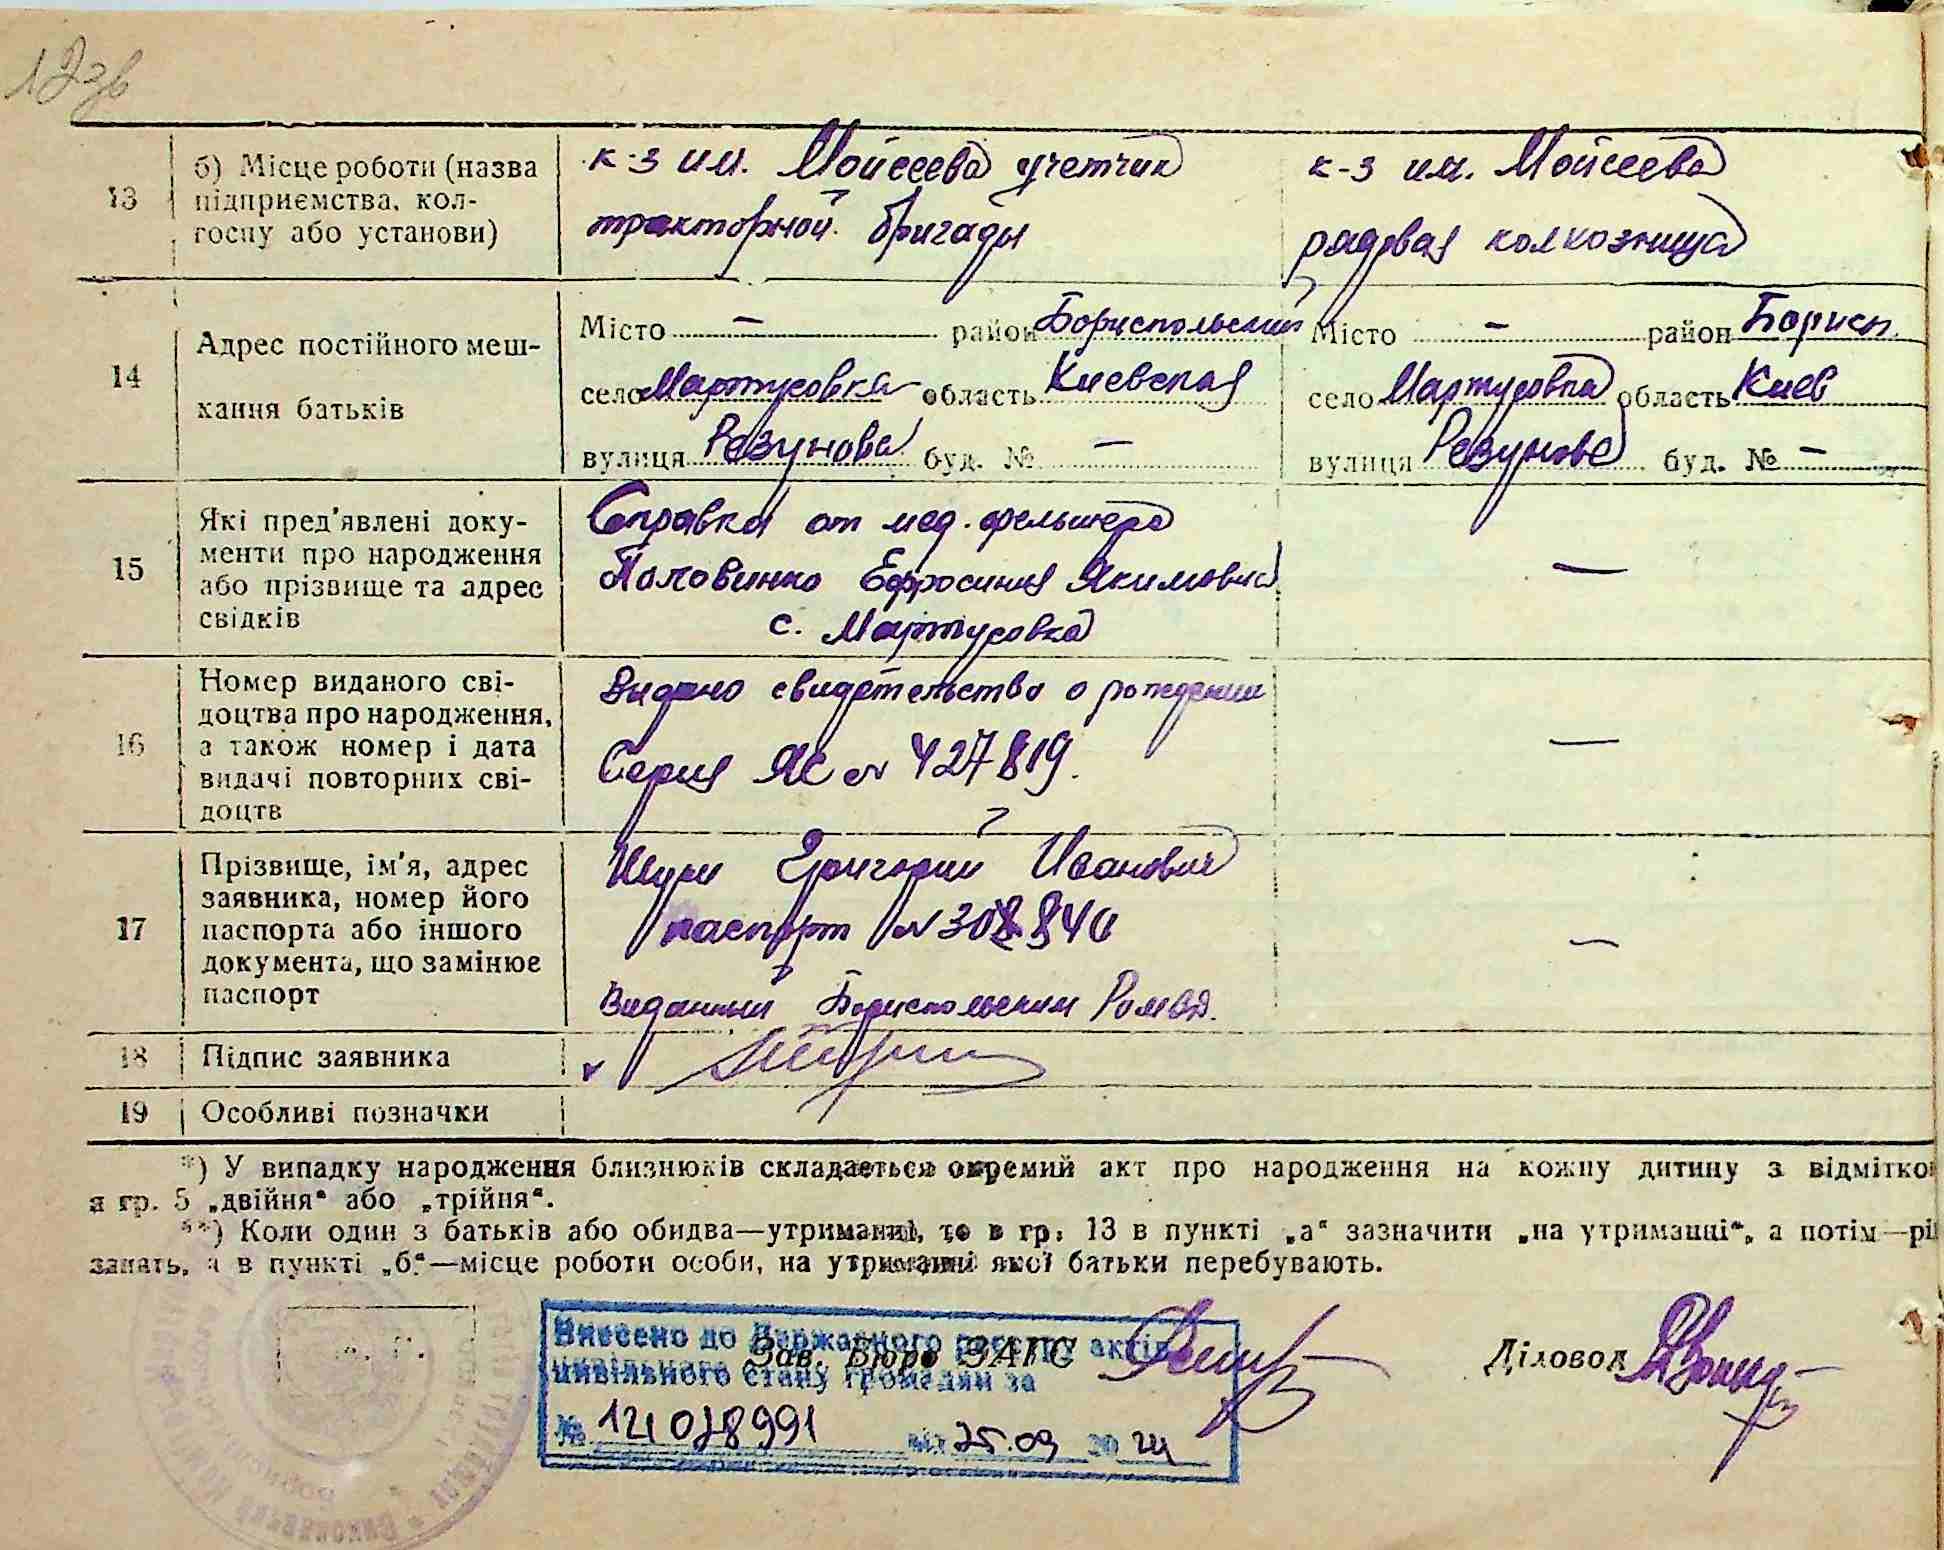 13
б) Місце роботи (назва
підприємства, кол-
госпу або установи)
к-з им. Мойсеева учетчик
тракторной бригады
к-з им. Мойсеева
рядовая колхозница
14
Адрес постійного меш-
кання батьків
Місто — район Бориспольский
село Мартусовка область Киевская
вулиця Резунова буд. № —
Місто — район Борисп.
село Мартусовка область Киев
вулиця Резунова буд. № —
15
Які пред'явлені доку-
менти про народження
або прізвище та адрес
свідків
Справка от мед. фельшера
Половинко Ефросиния Якимовна
с. Мартусовка
—
16
Номер виданого сві-
доцтва про народження,
а також номер і дата
видачі повторних сві-
доцтв
Видано свидетельство о рождении
Серия ЯС № 427819.
—
17
Прізвище, ім'я, адрес
заявника, номер його
паспорта або іншого
документа, що замінює
паспорт
Григорий Иванович
паспорт №308840
Виданный Бориспольским
—
18
Підпис заявника
19
Особливі позначки
*) У випадку народження близнюків складається окремий акт про народження на кожну дитину з відмітко
в гр. 5 „двійня“ або „трійня“.
**) Коли один з батьків або обидва—утриманці, то в гр. 13 в пункті „а“ зазначити „на утриманці“, а потім—рі
занать, а в пункті „б“—місце роботи особи, на утриманні якої батьки перебувають.
Внесено до Державного реєстру актів
цивільного стану громадян за
Зав. Бюро ЗАГС
Діловод
від 25.09 20 24